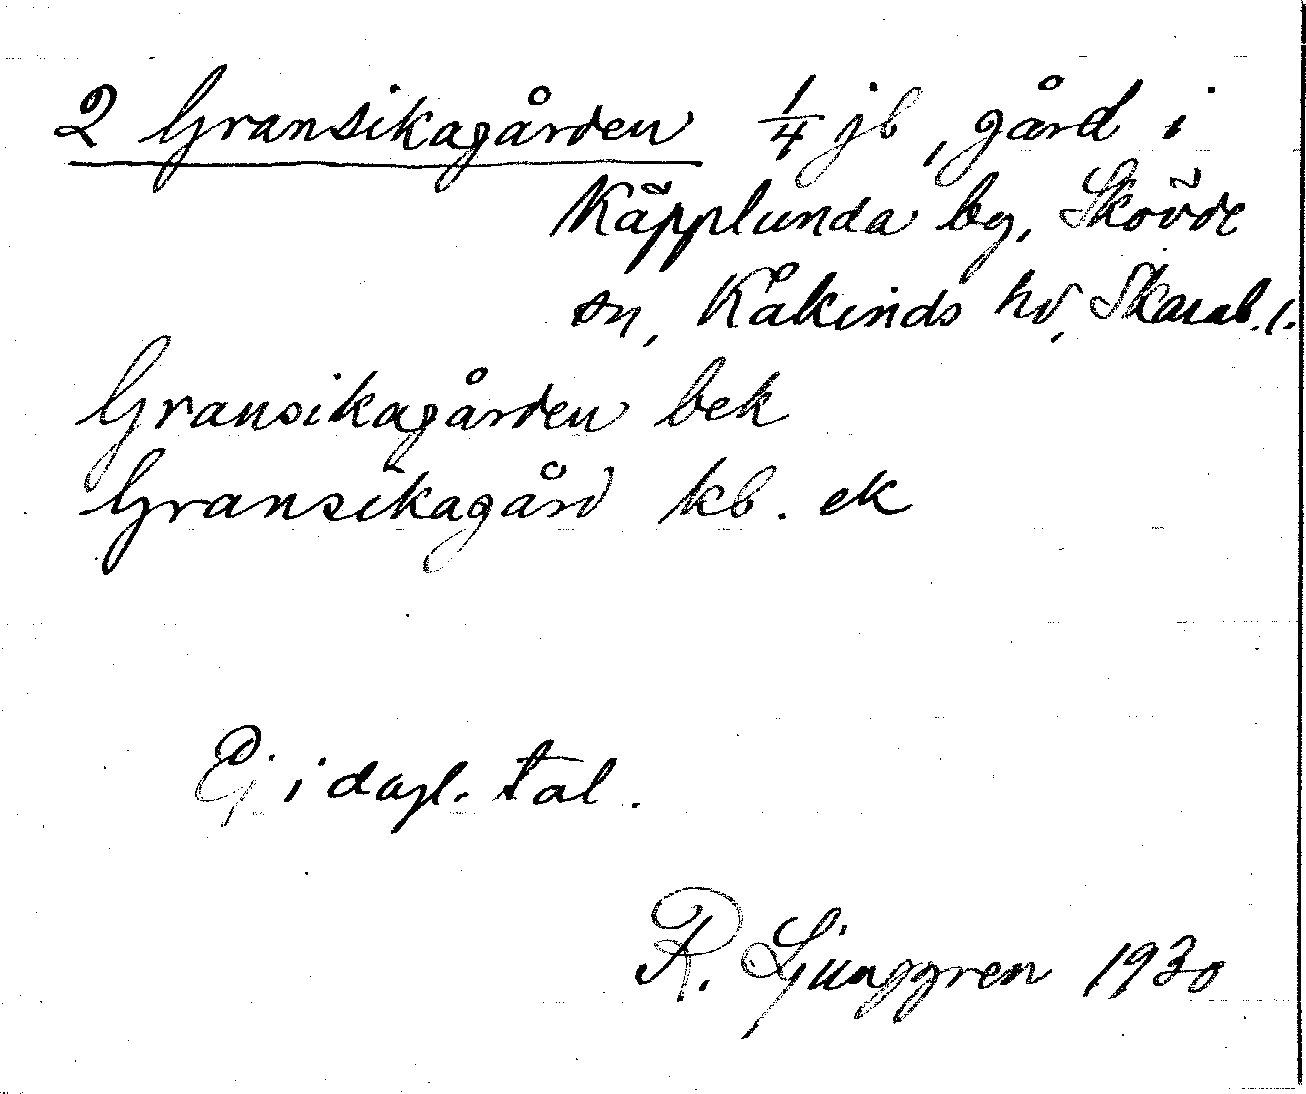 2 Gransikagården 1/4 jb, gård i
Käpplunda by, Skövde
sn, Kåkinds hd, Skarab. l.
Gransikagården bek
Gransikagård kb. ek
Ej i dagl. tal.
R. Ljunggren 1930